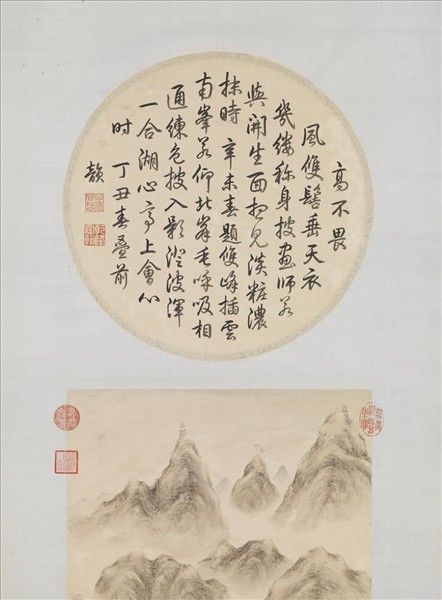 高不畏
風雙髻垂天衣
幾縷稱身披畫師若
與開生面想見淡粧濃
抹時 辛未春題雙峰插雲
南峯若仰北峯垂呼吸相
通練色披入影澄波渾
一合湖心亭上會心
时 丁丑春疊前
韻